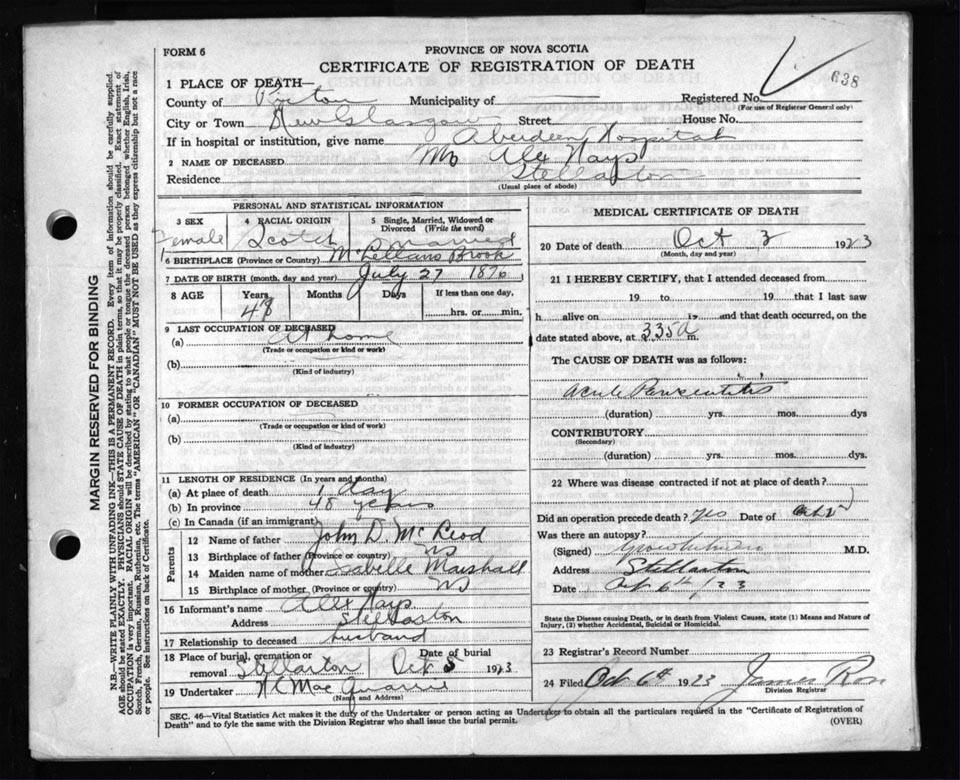 FORM 6
PROVINCE OF NOVA SCOTIA
CERTIFICATE OF REGISTRATION OF DEATH
638
1 PLACE OF DEATH—
County of Pictou Municipality of Registered No.
(For use of Registrar General only)
City or Town New Glasgow Street House No.
If in hospital or institution, give name Aberdeen Hospital
2 NAME OF DECEASED Mrs Alex Hays
Residence Stellarton
(Usual place of abode)
PERSONAL AND STATISTICAL INFORMATION
3 SEX
Female
4 RACIAL ORIGIN
Scotch
5 Single, Married, Widowed or Divorced (Write the word)
Married
6 BIRTHPLACE (Province or Country) McLellans Brook
7 DATE OF BIRTH (month, day and year) July 27 1876
8 AGE Years Months Days If less than one day,
48 hrs. or min.
9 LAST OCCUPATION OF DECEASED
(a) At home
(Trade or occupation or kind or work)
(b)
(Kind of industry)
10 FORMER OCCUPATION OF DECEASED
(a)
(Trade or occupation or kind or work)
(b)
(Kind of industry)
11 LENGTH OF RESIDENCE (In years and months)
(a) At place of death 1 day
(b) In province 48 years
(c) In Canada (if an immigrant)
Parents
12 Name of father John D. McLeod
13 Birthplace of father (Province or country) NS
14 Maiden name of mother Isabelle Marshall
15 Birthplace of mother (Province or country) NS
16 Informant's name Alex Hays
Address Stellarton
17 Relationship to deceased husband
18 Place of burial, cremation or removal Stellarton Date of burial Oct 5 1923
19 Undertaker MacQuarrie
(Name and Address)
MEDICAL CERTIFICATE OF DEATH
20 Date of death Oct 3 1923
(Month, day and year)
21 I HEREBY CERTIFY, that I attended deceased from
19 to 19 that I last saw
h alive on 19 and that death occurred, on
date stated above, at 335 a m.
The CAUSE OF DEATH was as follows:
Acute Pancreatitis
(duration) yrs. mos. dys
CONTRIBUTORY
(Secondary)
(duration) yrs. mos. dys.
22 Where was disease contracted if not at place of death?
Did an operation precede death? yes Date of Oct 2
Was there an autopsy?
(Signed) M.D.
Address Stellarton
Date Oct 6th /23
State the Disease causing Death, or in death from Violent Causes, state (1) Means and Nature of Injury, (2) whether Accidental, Suicidal or Homicidal.
23 Registrar's Record Number
24 Filed Oct 6th 1923 James Ross
Division Registrar
SEC. 46—Vital Statistics Act makes it the duty of the Undertaker or person acting as Undertaker to obtain all the particulars required in the "Certificate of Registration of
Death" and to fyle the same with the Division Registrar who shall issue the burial permit.
(OVER)
MARGIN RESERVED FOR BINDING
N.B.—WRITE PLAINLY WITH UNFADING INK—THIS IS A PERMANENT RECORD. Every item of information should be carefully supplied.
AGE should be stated EXACTLY. PHYSICIANS should STATE CAUSE OF DEATH in plain terms, so that it may be properly classified. Exact statement of
OCCUPATION is very important. RACIAL ORIGIN will be described by stating to what people or tongue the deceased person belonged whether English, Irish,
Scotch, French, German, Russian, Ruthenian, etc. The terms "AMERICAN" OR "CANADIAN" MUST NOT BE USED as they express citizenship but not a race
or people. See instructions on back of Certificate.